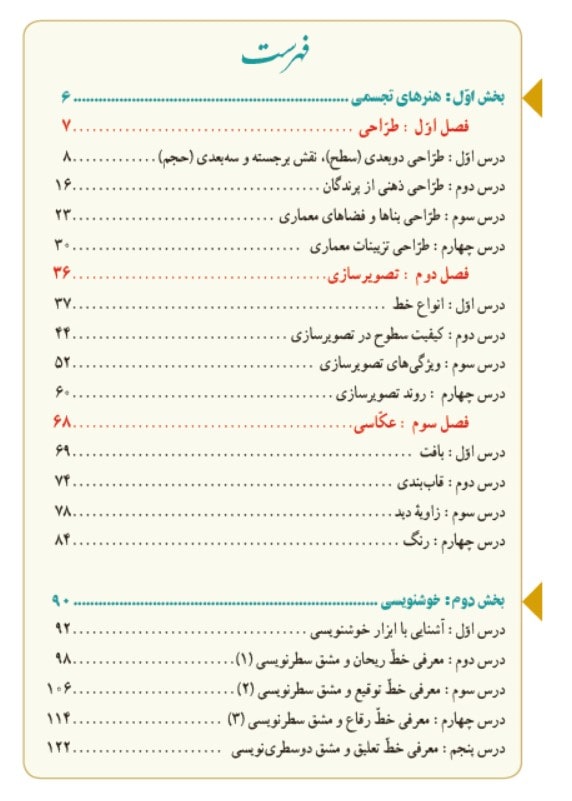 فهرست
بخش اوّل: هنرهای تجسمی ........................................ ۶
فصل اوّل : طرّاحی ........................................ ۷
درس اوّل : طرّاحی دوبعدی (سطح)، نقش برجسته و سه‌بعدی (حجم) ............. ۸
درس دوم : طرّاحی ذهنی از پرندگان ........................................ ۱۶
درس سوم : طرّاحی بناها و فضاهای معماری ................................ ۲۳
درس چهارم : طرّاحی تزیینات معماری ................................ ۳۰
فصل دوم : تصویرسازی ........................................ ۳۶
درس اوّل : انواع خط ........................................ ۳۷
درس دوم : کیفیت سطوح در تصویرسازی ................................ ۴۴
درس سوم : ویژگی‌های تصویرسازی ................................ ۵۲
درس چهارم : روند تصویرسازی ................................ ۶۰
فصل سوم : عکّاسی ........................................ ۶۸
درس اوّل : بافت ........................................ ۶۹
درس دوم : قاب‌بندی ........................................ ۷۴
درس سوم : زاویۀ دید ........................................ ۷۸
درس چهارم : رنگ ........................................ ۸۴
بخش دوم: خوشنویسی ........................................ ۹۰
درس اوّل : آشنایی با ابزار خوشنویسی ................................ ۹۲
درس دوم : معرفی خطّ ریحان و مشق سطرنویسی (۱) ........................ ۹۸
درس سوم : معرفی خطّ توقیع و مشق سطرنویسی (۲) ........................ ۱۰۶
درس چهارم : معرفی خطّ رقاع و مشق سطرنویسی (۳) ........................ ۱۱۴
درس پنجم : معرفی خطّ تعلیق و مشق دوسطری‌نویسی ........................ ۱۲۲